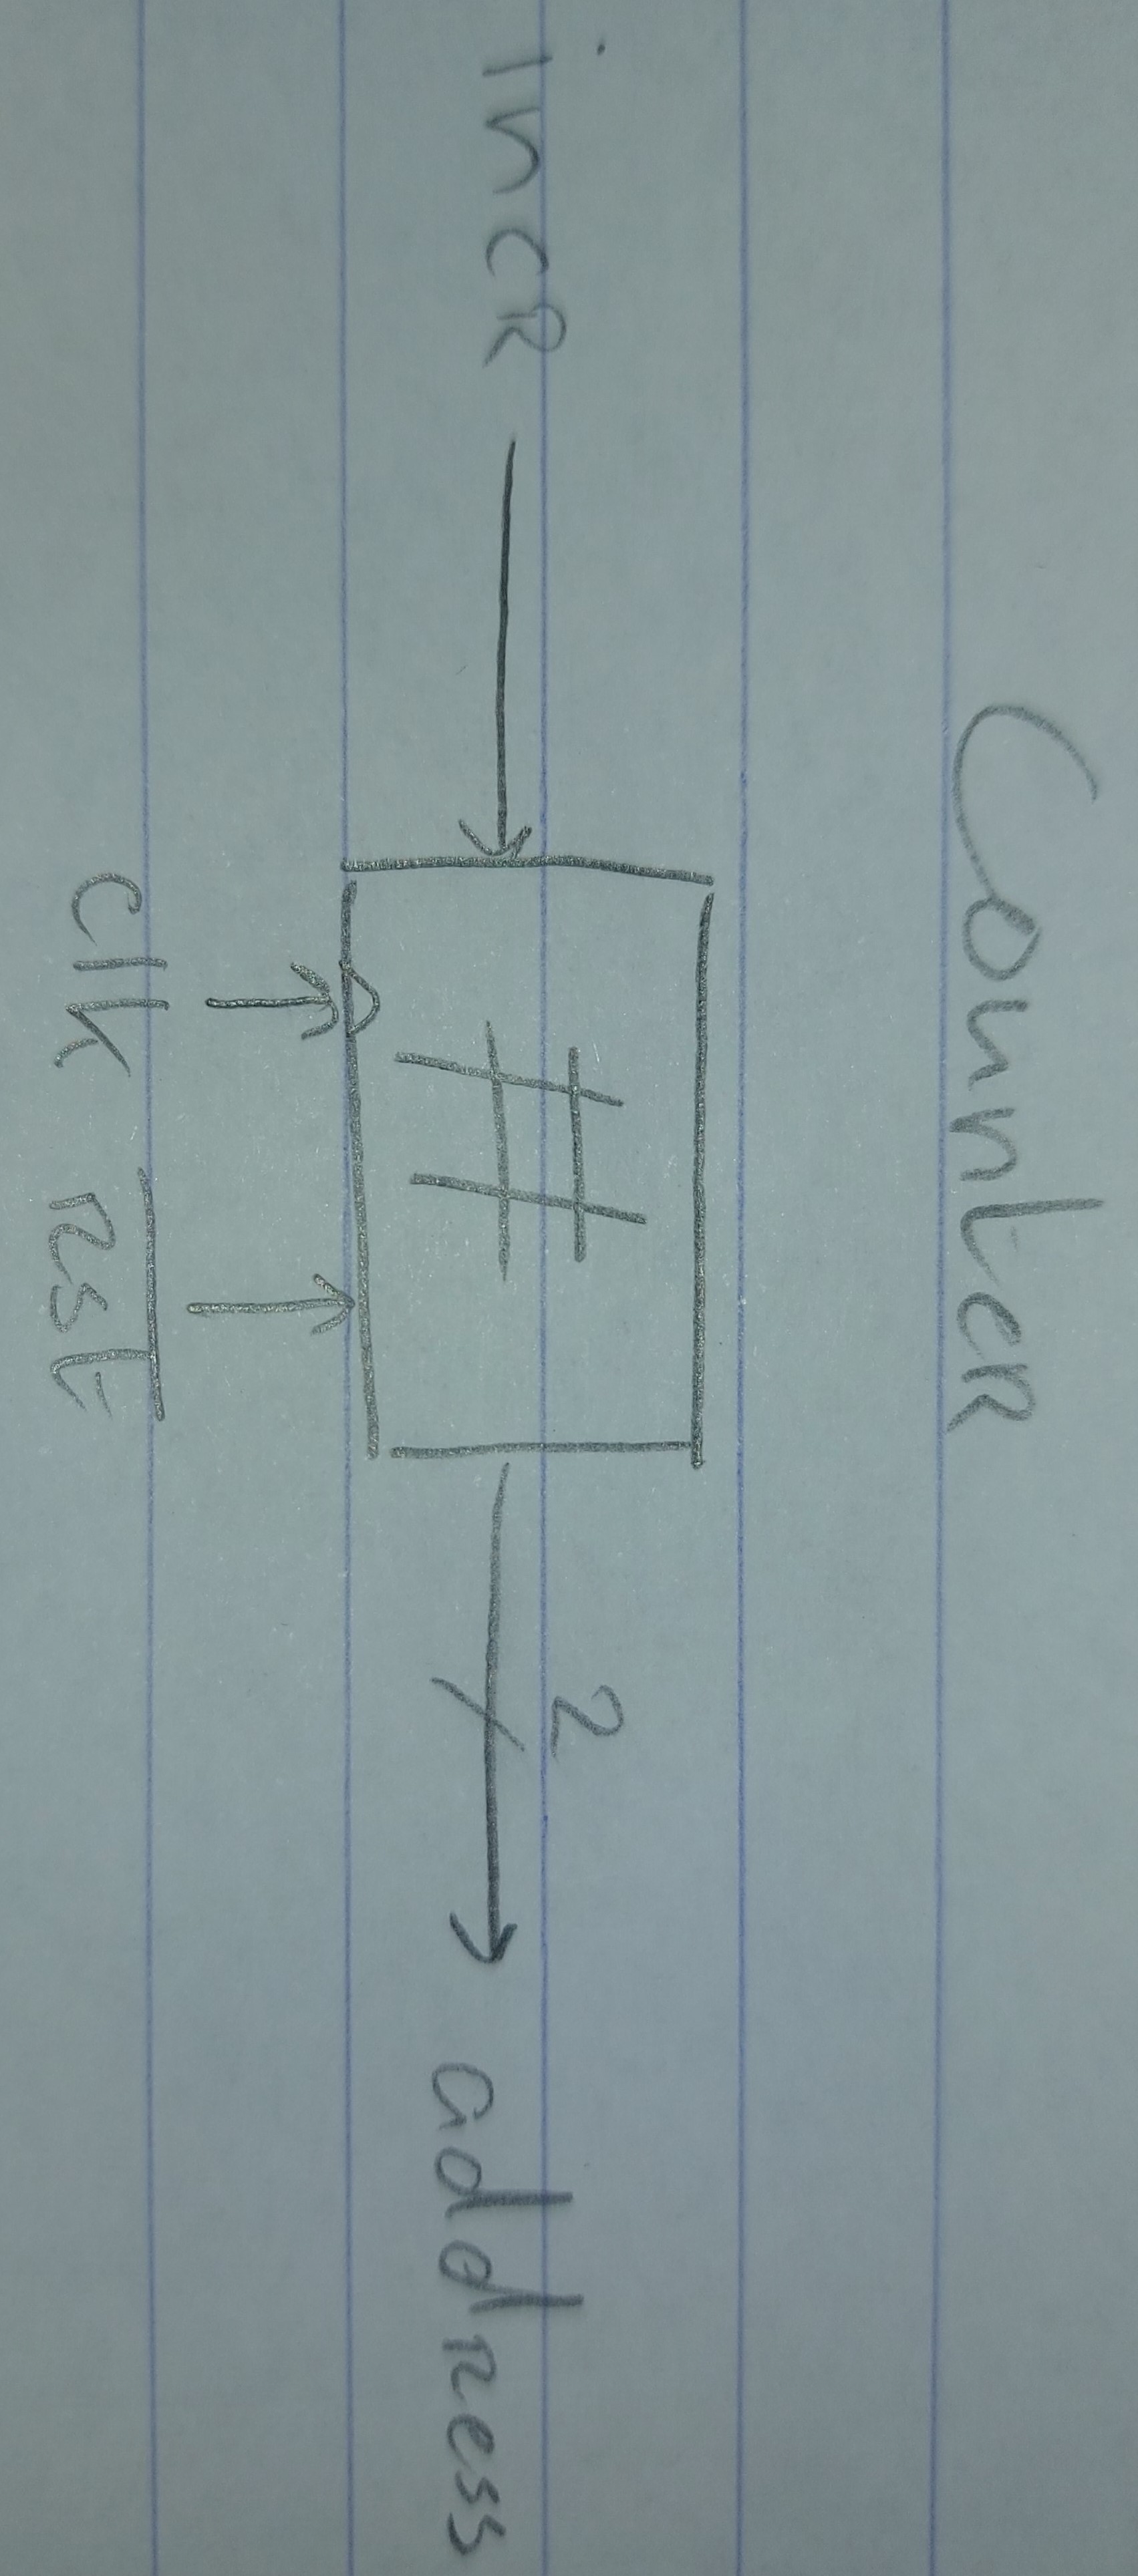 Counter
#
2
incr
address
clk r̅s̅t̅